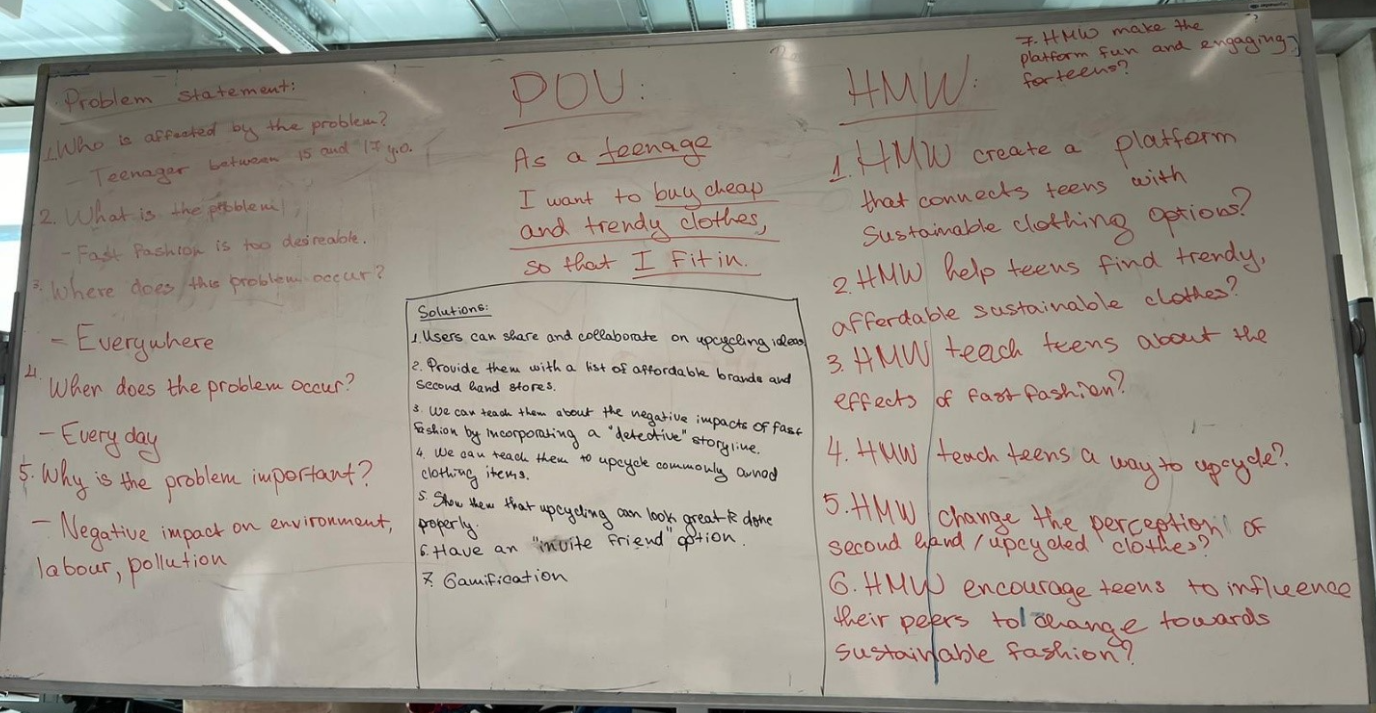 Problem statement:
1. Who is affected by the problem?
- Teenager between 15 and 17 y.o.
2. What is the problem
- Fast fashion is too desireable.
3. Where does this problem occur?
- Everywhere
4. When does the problem occur?
- Every day
5. Why is the problem important?
- Negative impact on environment,
labour, pollution
POV:
As a teenage
I want to buy cheap
and trendy clothes,
so that I Fit in.
Solutions:
1. Users can share and collaborate on upcycling ideas
2. Provide them with a list of affordable brands and
second hand stores.
3. We can teach them about the negative impacts of fast
fashion by incorporating a "detective" storyline.
4. We can teach them to upcycle commonly owned
clothing items.
5. Show them that upcycling can look great if done
properly.
6. Have an "invite friend" option.
7. Gamification
HMW:
7. HMW make the
platform fun and engaging
for teens?
1. HMW create a platform
that connects teens with
sustainable clothing options?
2. HMW help teens find trendy,
affordable sustainable clothes?
3. HMW teach teens about the
effects of fast fashion?
4. HMW teach teens a way to upcycle?
5. HMW change the perception of
second hand / upcycled clothes?
6. HMW encourage teens to influence
their peers to change towards
sustainable fashion?